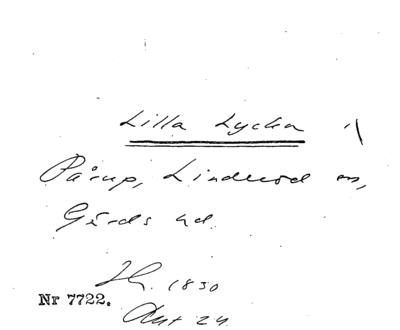 Lilla Lycka
Pårup, Linderöd sn,
Gärds hd.
1830
Nr 7722.
Akt 24